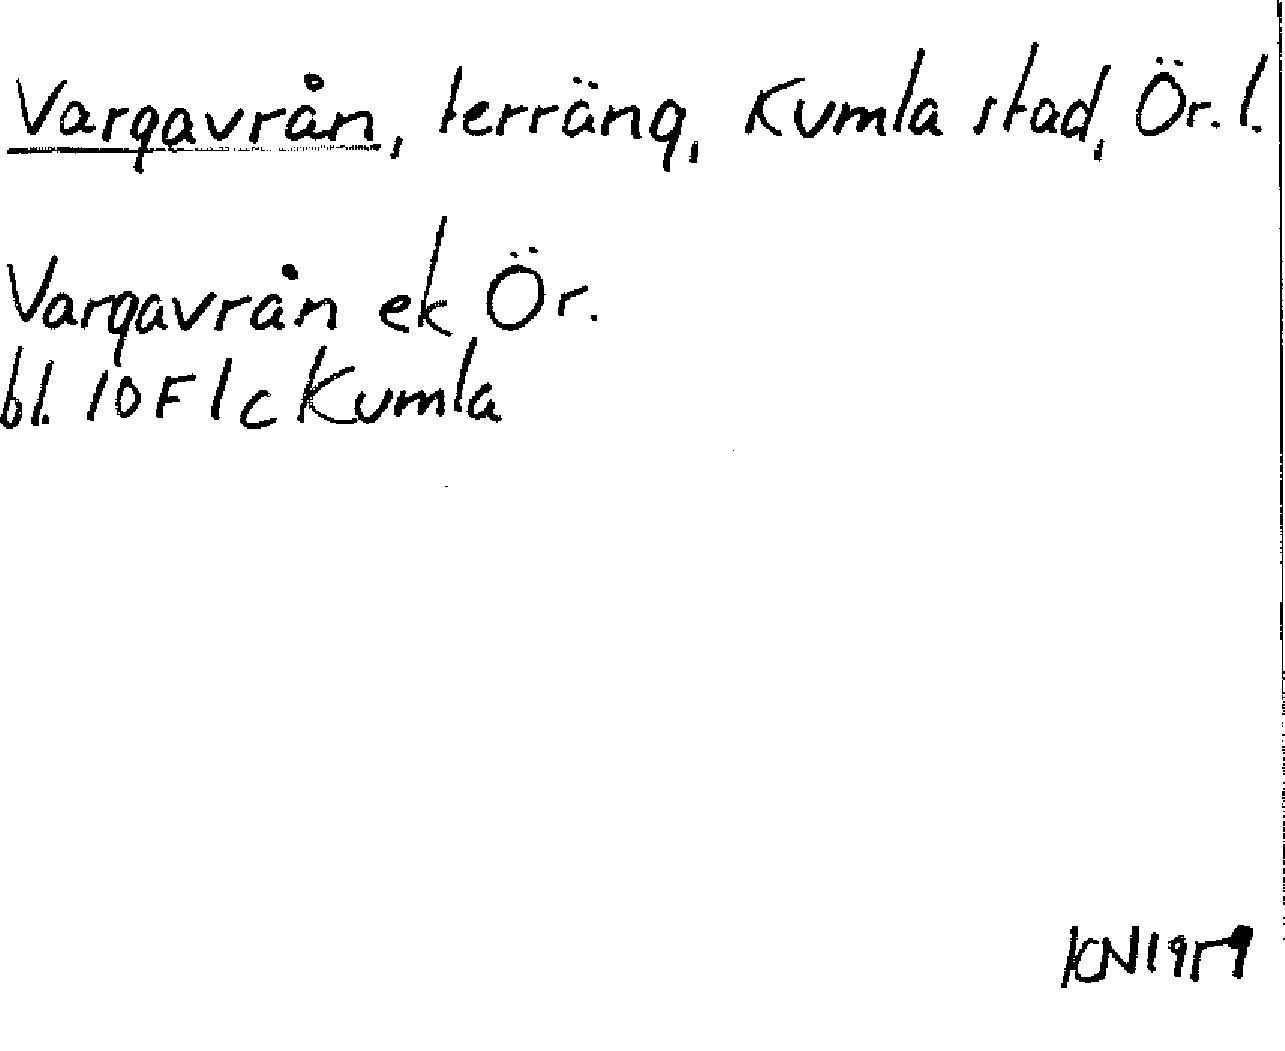 Vargavrån, terräng, Kumla stad, Ör. l.
Vargavrån ek Ör.
bl. 10F 1c Kumla